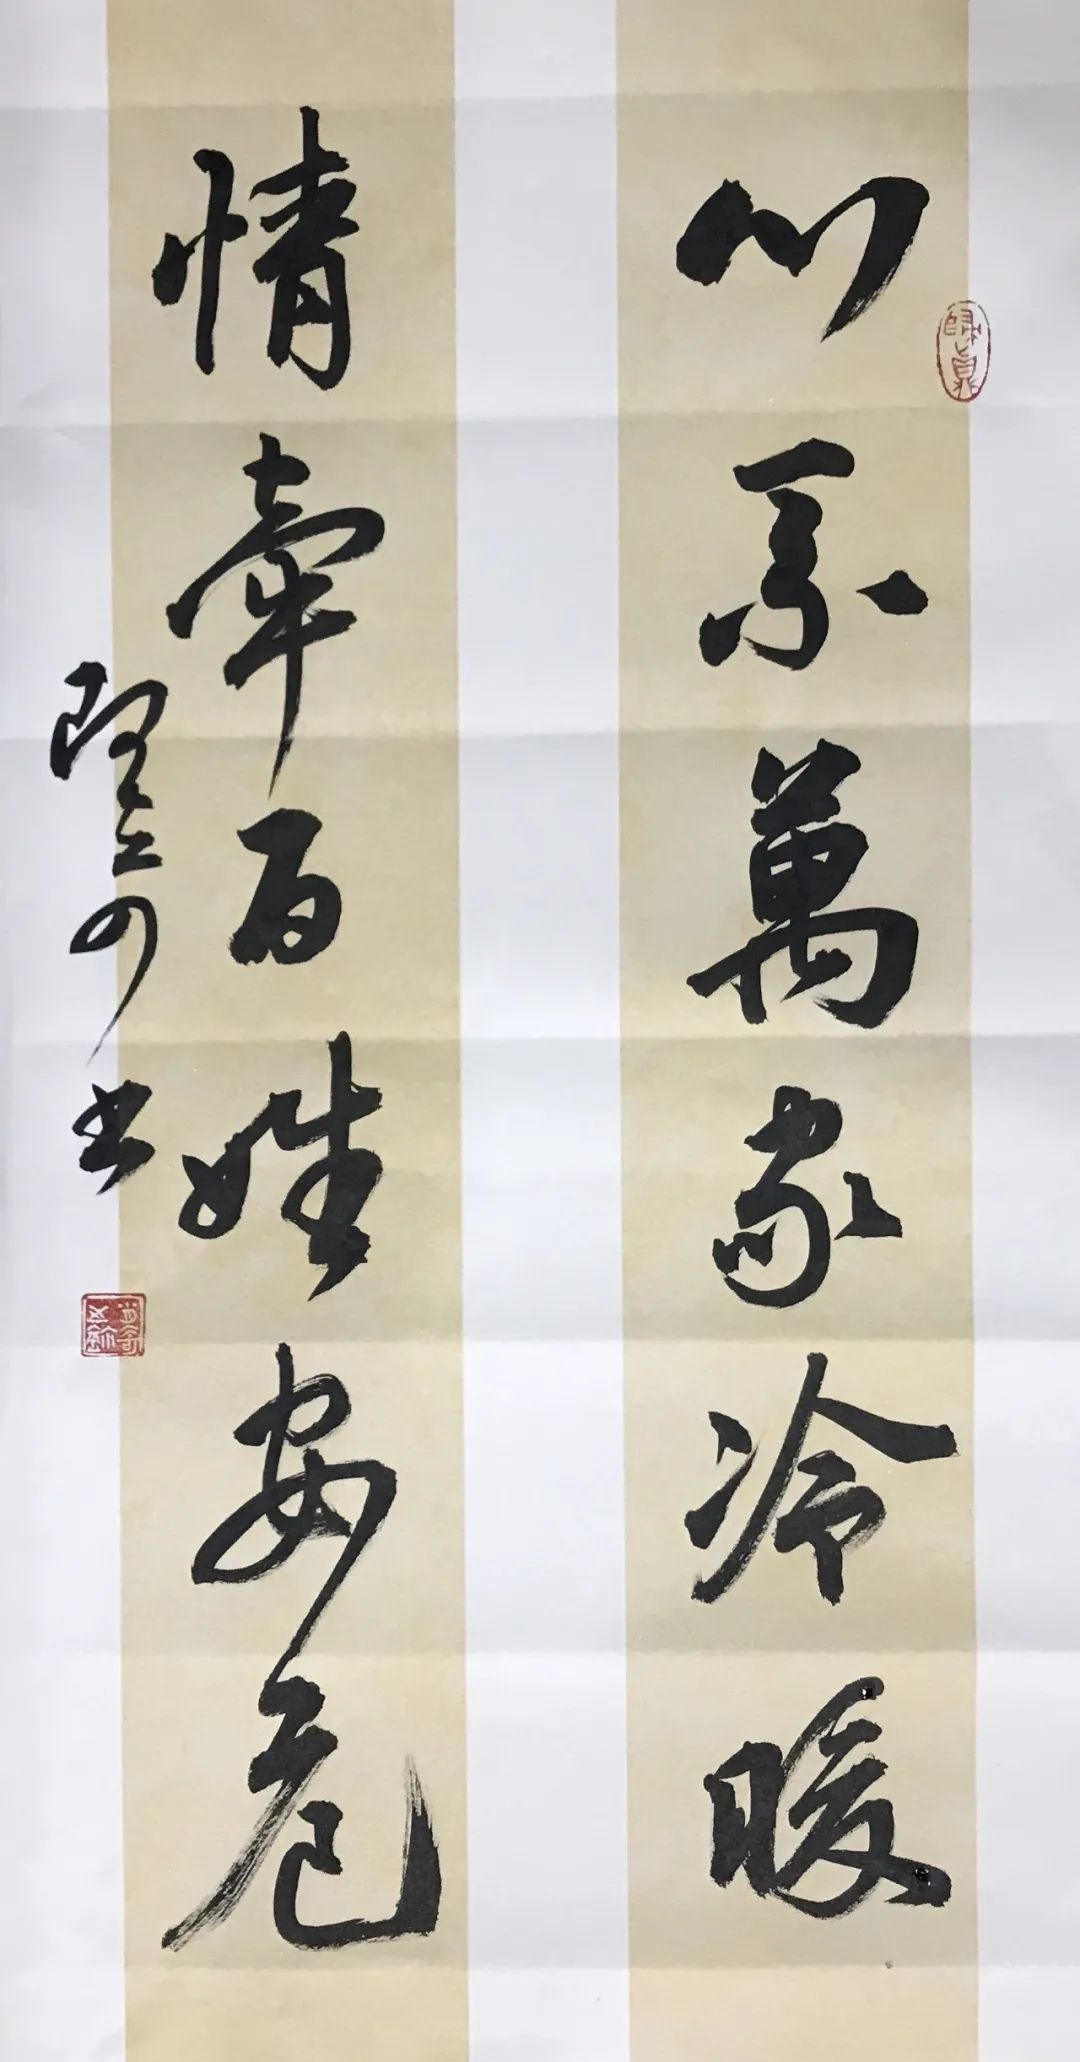 心系萬家冷暖
情牽百姓安危
書